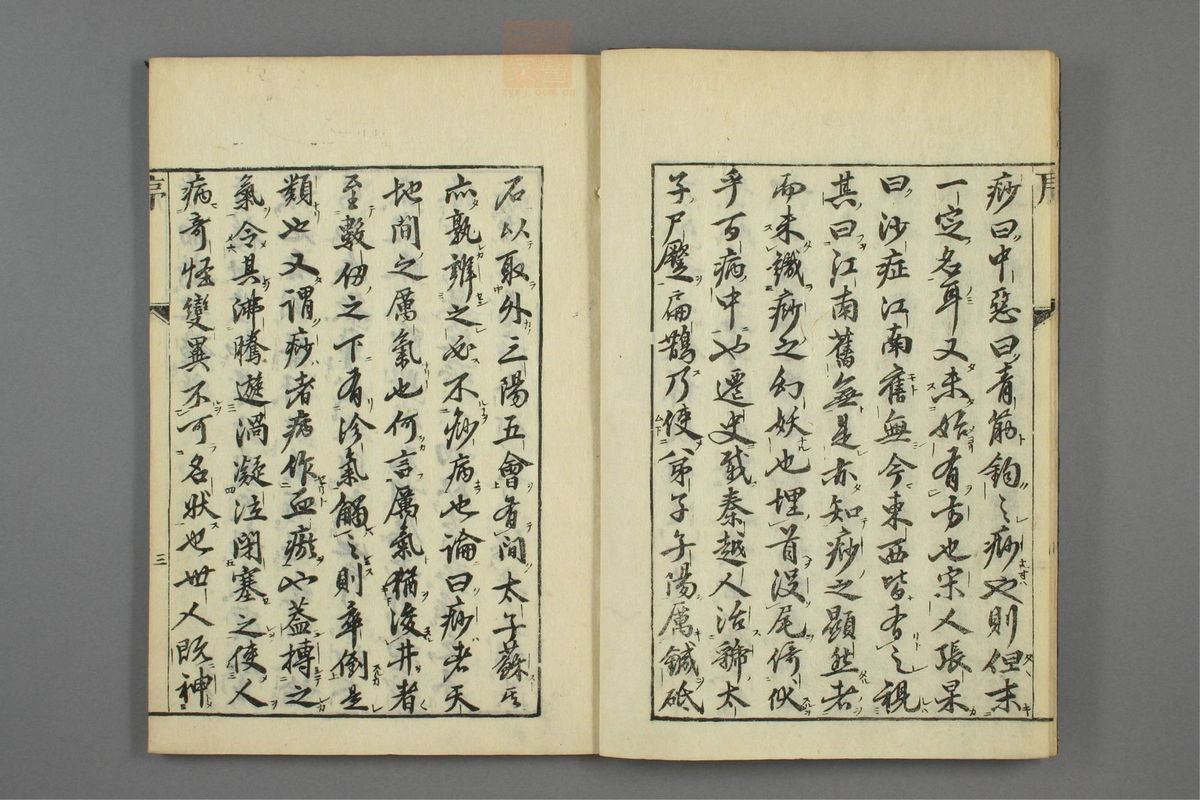 痧曰中惡曰青筋鈞之痧也則但未
一定名耳又未始有方也宋人張杲
曰沙症江南舊無今東西皆有之視
其曰江南舊無是亦知痧之顯然者
而未識痧之幻妖也埋首沒尾倚伏
乎百病中也遷史載秦越人治虢太
子尸蹷扁鵲乃使弟子子陽厲鍼砥
石以取外三陽五會有間太子蘇
亦孰辨之必不痧病也論曰痧者天
地間之厲氣也何言厲氣猶浚井者
至數仞之下有沴氣觸之則卒倒是
類也又謂痧者病作血瘀也蓋搏之
氣令其沸騰遊渦凝泣閉塞之使人
病奇怪變異不可名狀也世人既神
序
三